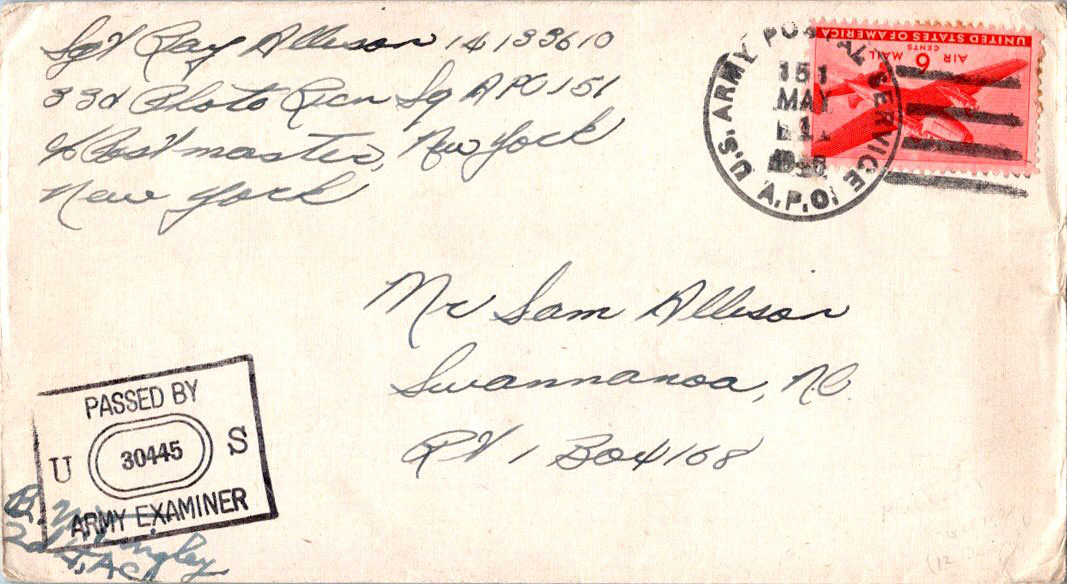 Sgt Ray Allison 14133610
33d Photo Rcn Sq APO 151
℅ Postmaster, New York
New York
U.S. ARMY POSTAL SERVICE
A.P.O.
151
MAY
UNITED STATES OF AMERICA
AIR MAIL
6 CENTS
Mr Sam Allison
Swannanoa, N.C.
Rt 1 Box 168
PASSED BY
U 30445 S
ARMY EXAMINER